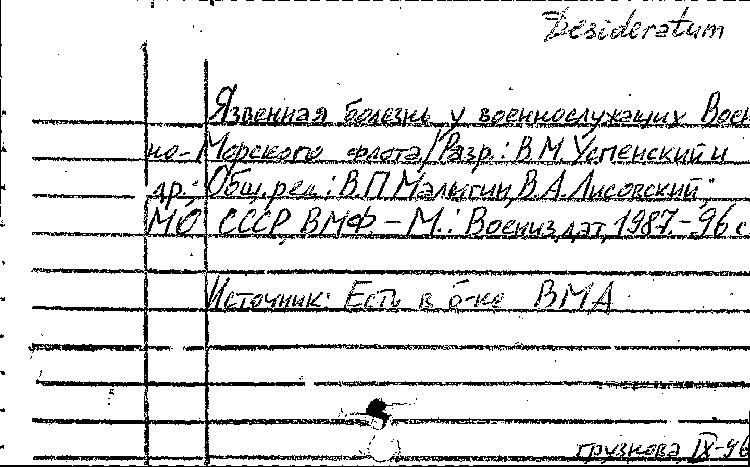 Desideratum
Язвенная болезнь у военнослужащих Воен
но-Морского флота/Разр.: В.М.Успенский и
др.; Общ.ред.: В.П.Малыгин, В.А.Лисовский;
МО СССР, ВМФ.-М.: Воениздат, 1987.-96 с.
Источник: Есть в б-ке ВМА
грузнова IX-96